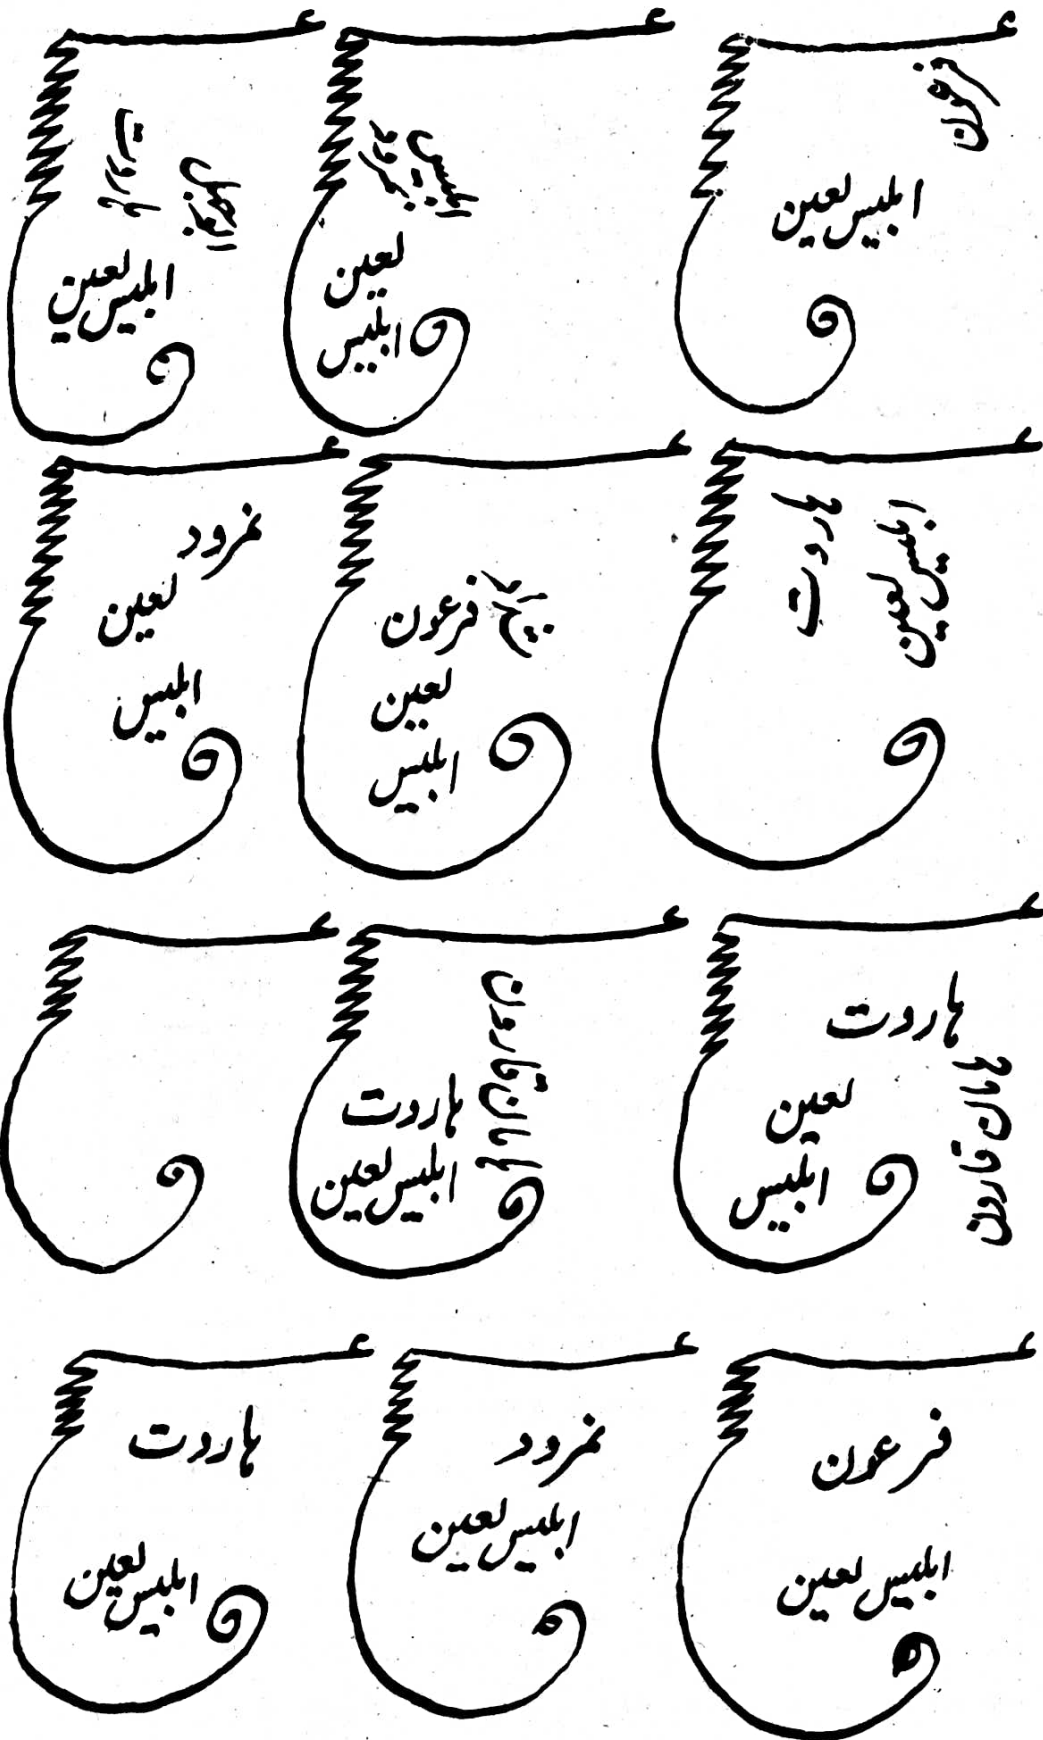 فرعون
ابلیس لعین
ابلیس
نمرود
لعین
ابلیس
ہاروت
ابلیس لعین
ہاروت
ابلیس لعین
فرعون
لعین
ابلیس
نمرود
لعین
ابلیس
ہاروت
ہامان قارون
لعین
ابلیس
ہامان قارون
ہاروت
ابلیس لعین
فرعون
ابلیس لعین
نمرود
ابلیس لعین
ہاروت
ابلیس لعین